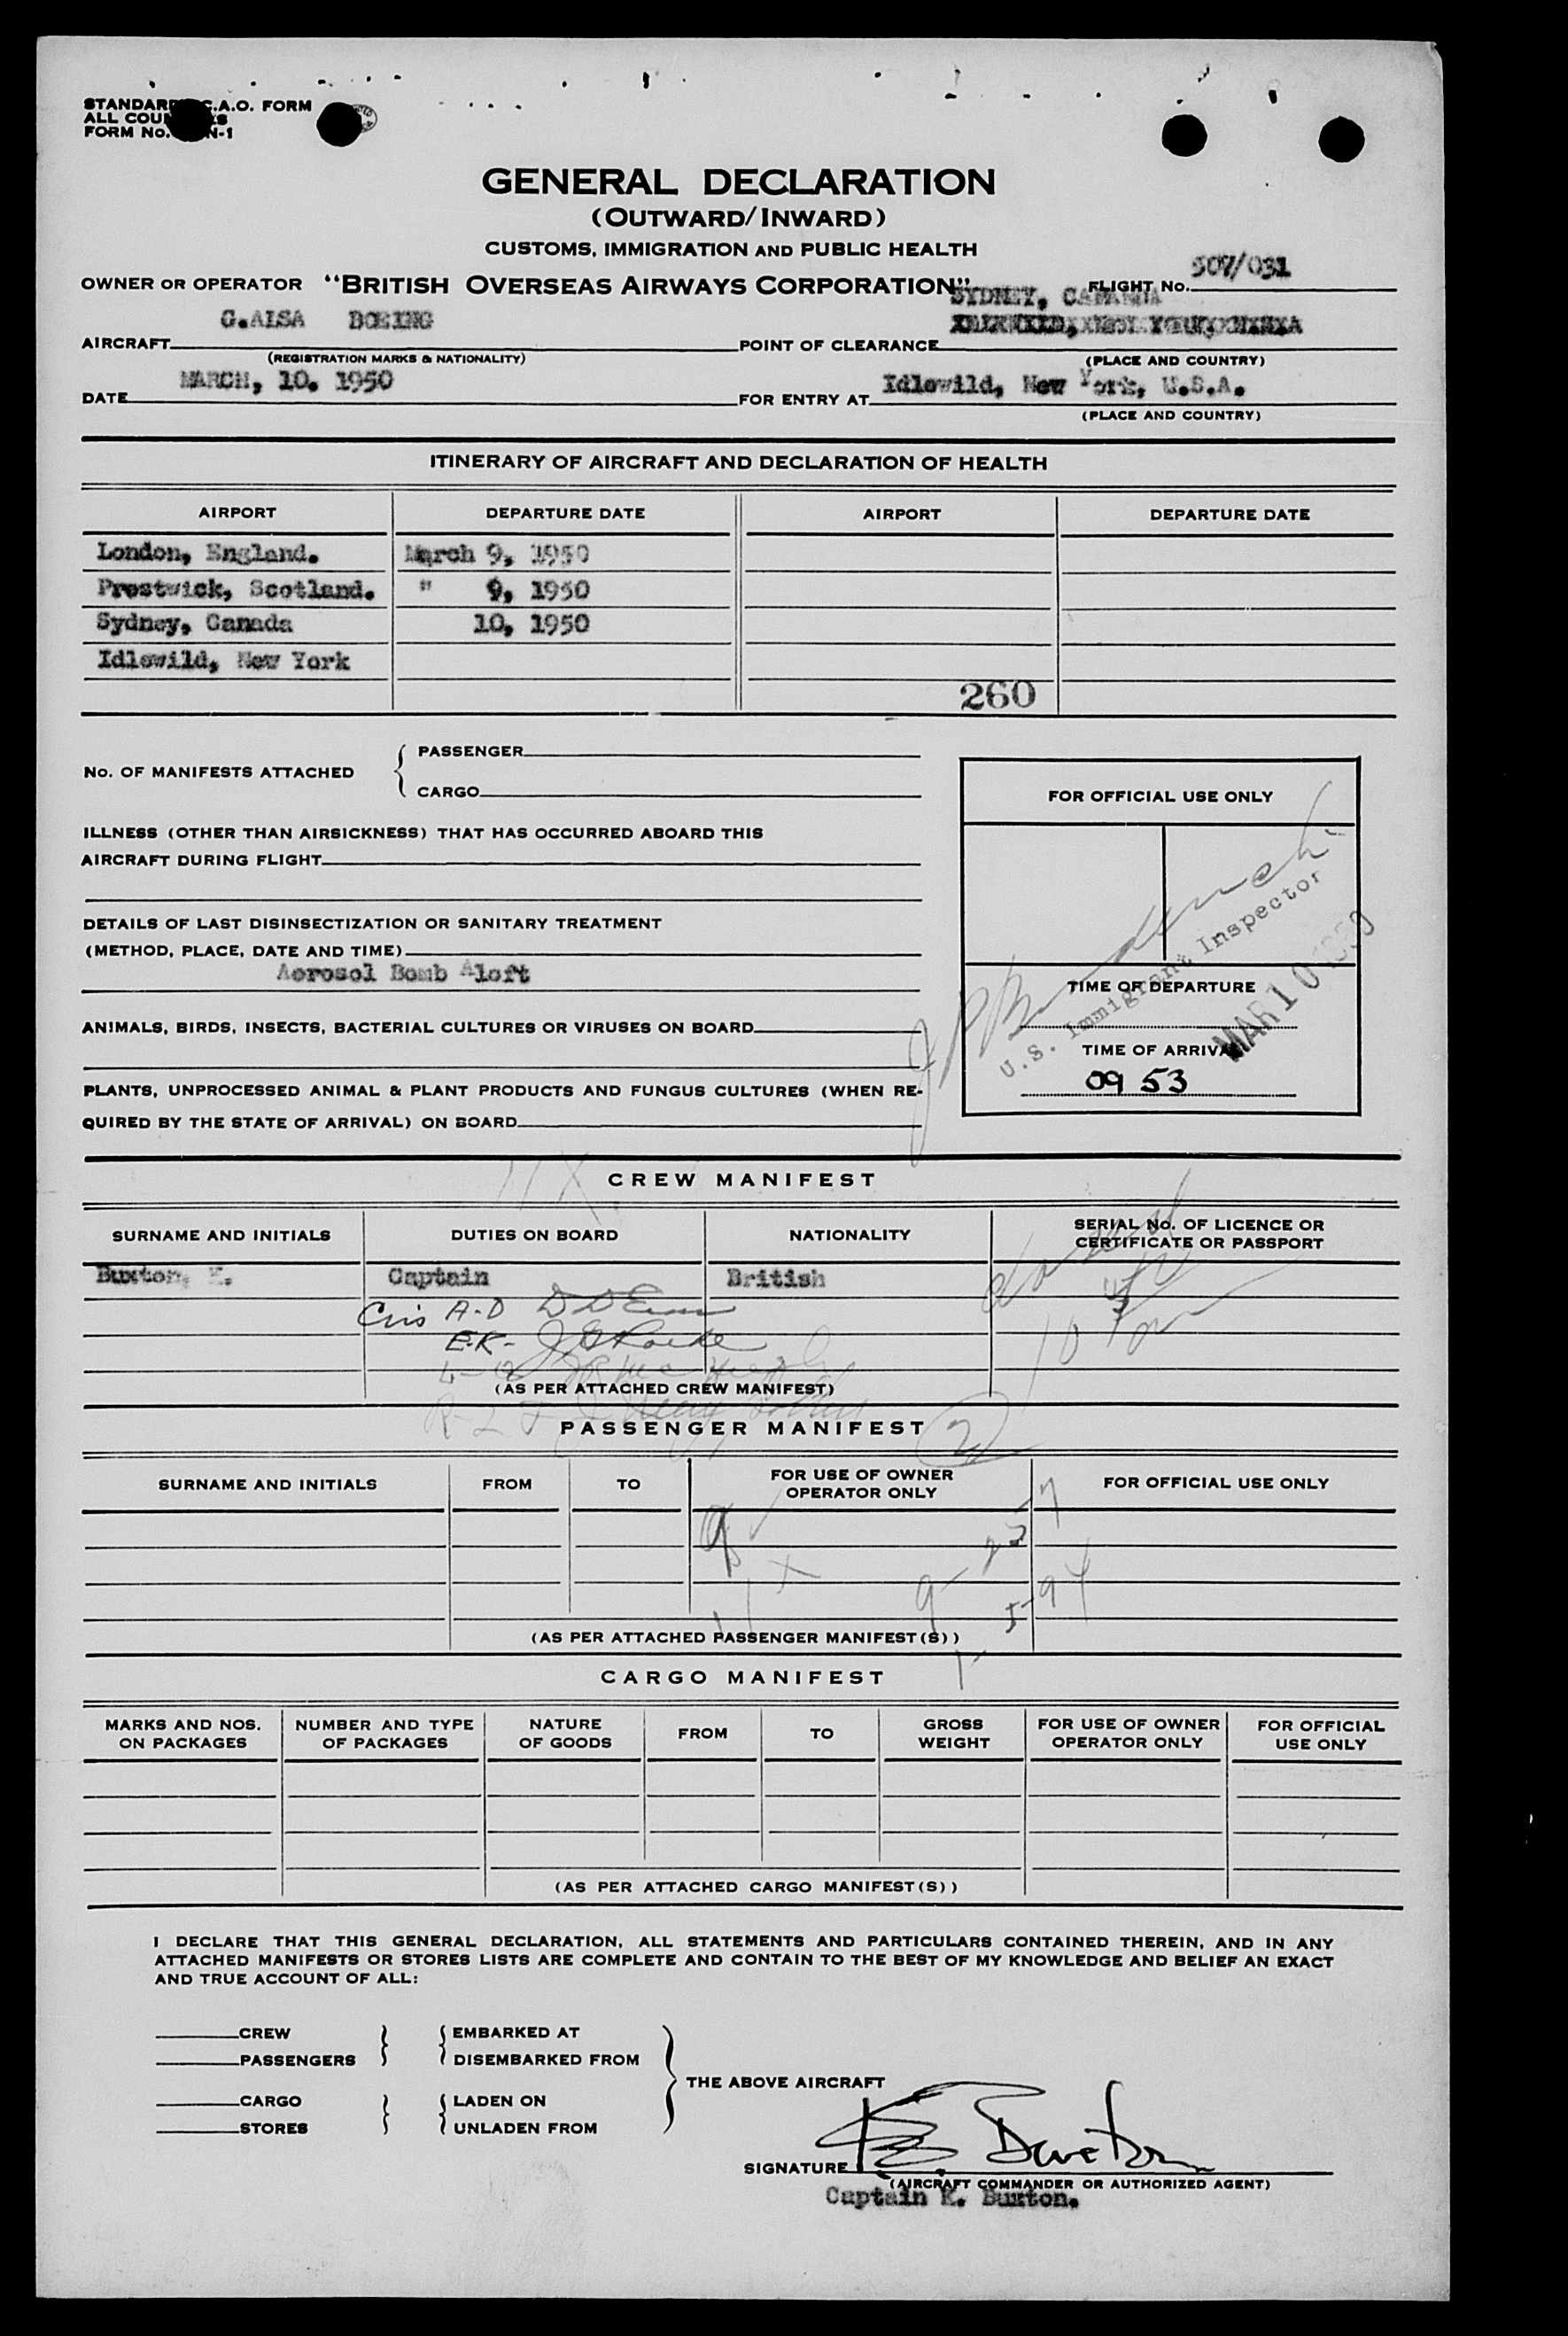 STANDARD I.C.A.O. FORM
ALL COUNTRIES
FORM No. N-1
GENERAL DECLARATION
(OUTWARD/INWARD)
CUSTOMS, IMMIGRATION AND PUBLIC HEALTH
OWNER OR OPERATOR "BRITISH OVERSEAS AIRWAYS CORPORATION" FLIGHT No. 507/031
G.ALSA BOEING SYDNEY, CANADA
AIRCRAFT POINT OF CLEARANCE
(REGISTRATION MARKS & NATIONALITY) (PLACE AND COUNTRY)
DATE MARCH, 10. 1950 FOR ENTRY AT Idlewild, New York, U.S.A.
(PLACE AND COUNTRY)
ITINERARY OF AIRCRAFT AND DECLARATION OF HEALTH
AIRPORT DEPARTURE DATE AIRPORT DEPARTURE DATE
London, England. March 9, 1950
Prestwick, Scotland. " 9, 1950
Sydney, Canada 10, 1950
Idlewild, New York
260
No. OF MANIFESTS ATTACHED
PASSENGER
CARGO
ILLNESS (OTHER THAN AIRSICKNESS) THAT HAS OCCURRED ABOARD THIS
AIRCRAFT DURING FLIGHT
DETAILS OF LAST DISINSECTIZATION OR SANITARY TREATMENT
(METHOD, PLACE, DATE AND TIME)
Aerosol Bomb Aloft
ANIMALS, BIRDS, INSECTS, BACTERIAL CULTURES OR VIRUSES ON BOARD
PLANTS, UNPROCESSED ANIMAL & PLANT PRODUCTS AND FUNGUS CULTURES (WHEN RE-
QUIRED BY THE STATE OF ARRIVAL) ON BOARD
FOR OFFICIAL USE ONLY
U.S. Immigrant Inspector
MAR 10 1950
TIME OF DEPARTURE
TIME OF ARRIVAL
09 53
CREW MANIFEST
SURNAME AND INITIALS DUTIES ON BOARD NATIONALITY SERIAL No. OF LICENCE OR
CERTIFICATE OR PASSPORT
Buxton, K. Captain British
A-D
E.K-
(AS PER ATTACHED CREW MANIFEST)
PASSENGER MANIFEST
2
SURNAME AND INITIALS FROM TO FOR USE OF OWNER
OPERATOR ONLY FOR OFFICIAL USE ONLY
(AS PER ATTACHED PASSENGER MANIFEST(S))
CARGO MANIFEST
MARKS AND NOS.
ON PACKAGES NUMBER AND TYPE
OF PACKAGES NATURE
OF GOODS FROM TO GROSS
WEIGHT FOR USE OF OWNER
OPERATOR ONLY FOR OFFICIAL
USE ONLY
(AS PER ATTACHED CARGO MANIFEST(S))
I DECLARE THAT THIS GENERAL DECLARATION, ALL STATEMENTS AND PARTICULARS CONTAINED THEREIN, AND IN ANY
ATTACHED MANIFESTS OR STORES LISTS ARE COMPLETE AND CONTAIN TO THE BEST OF MY KNOWLEDGE AND BELIEF AN EXACT
AND TRUE ACCOUNT OF ALL:
CREW EMBARKED AT
PASSENGERS DISEMBARKED FROM
THE ABOVE AIRCRAFT
CARGO LADEN ON
STORES UNLADEN FROM
SIGNATURE K. Buxton
(AIRCRAFT COMMANDER OR AUTHORIZED AGENT)
Captain K. Buxton.